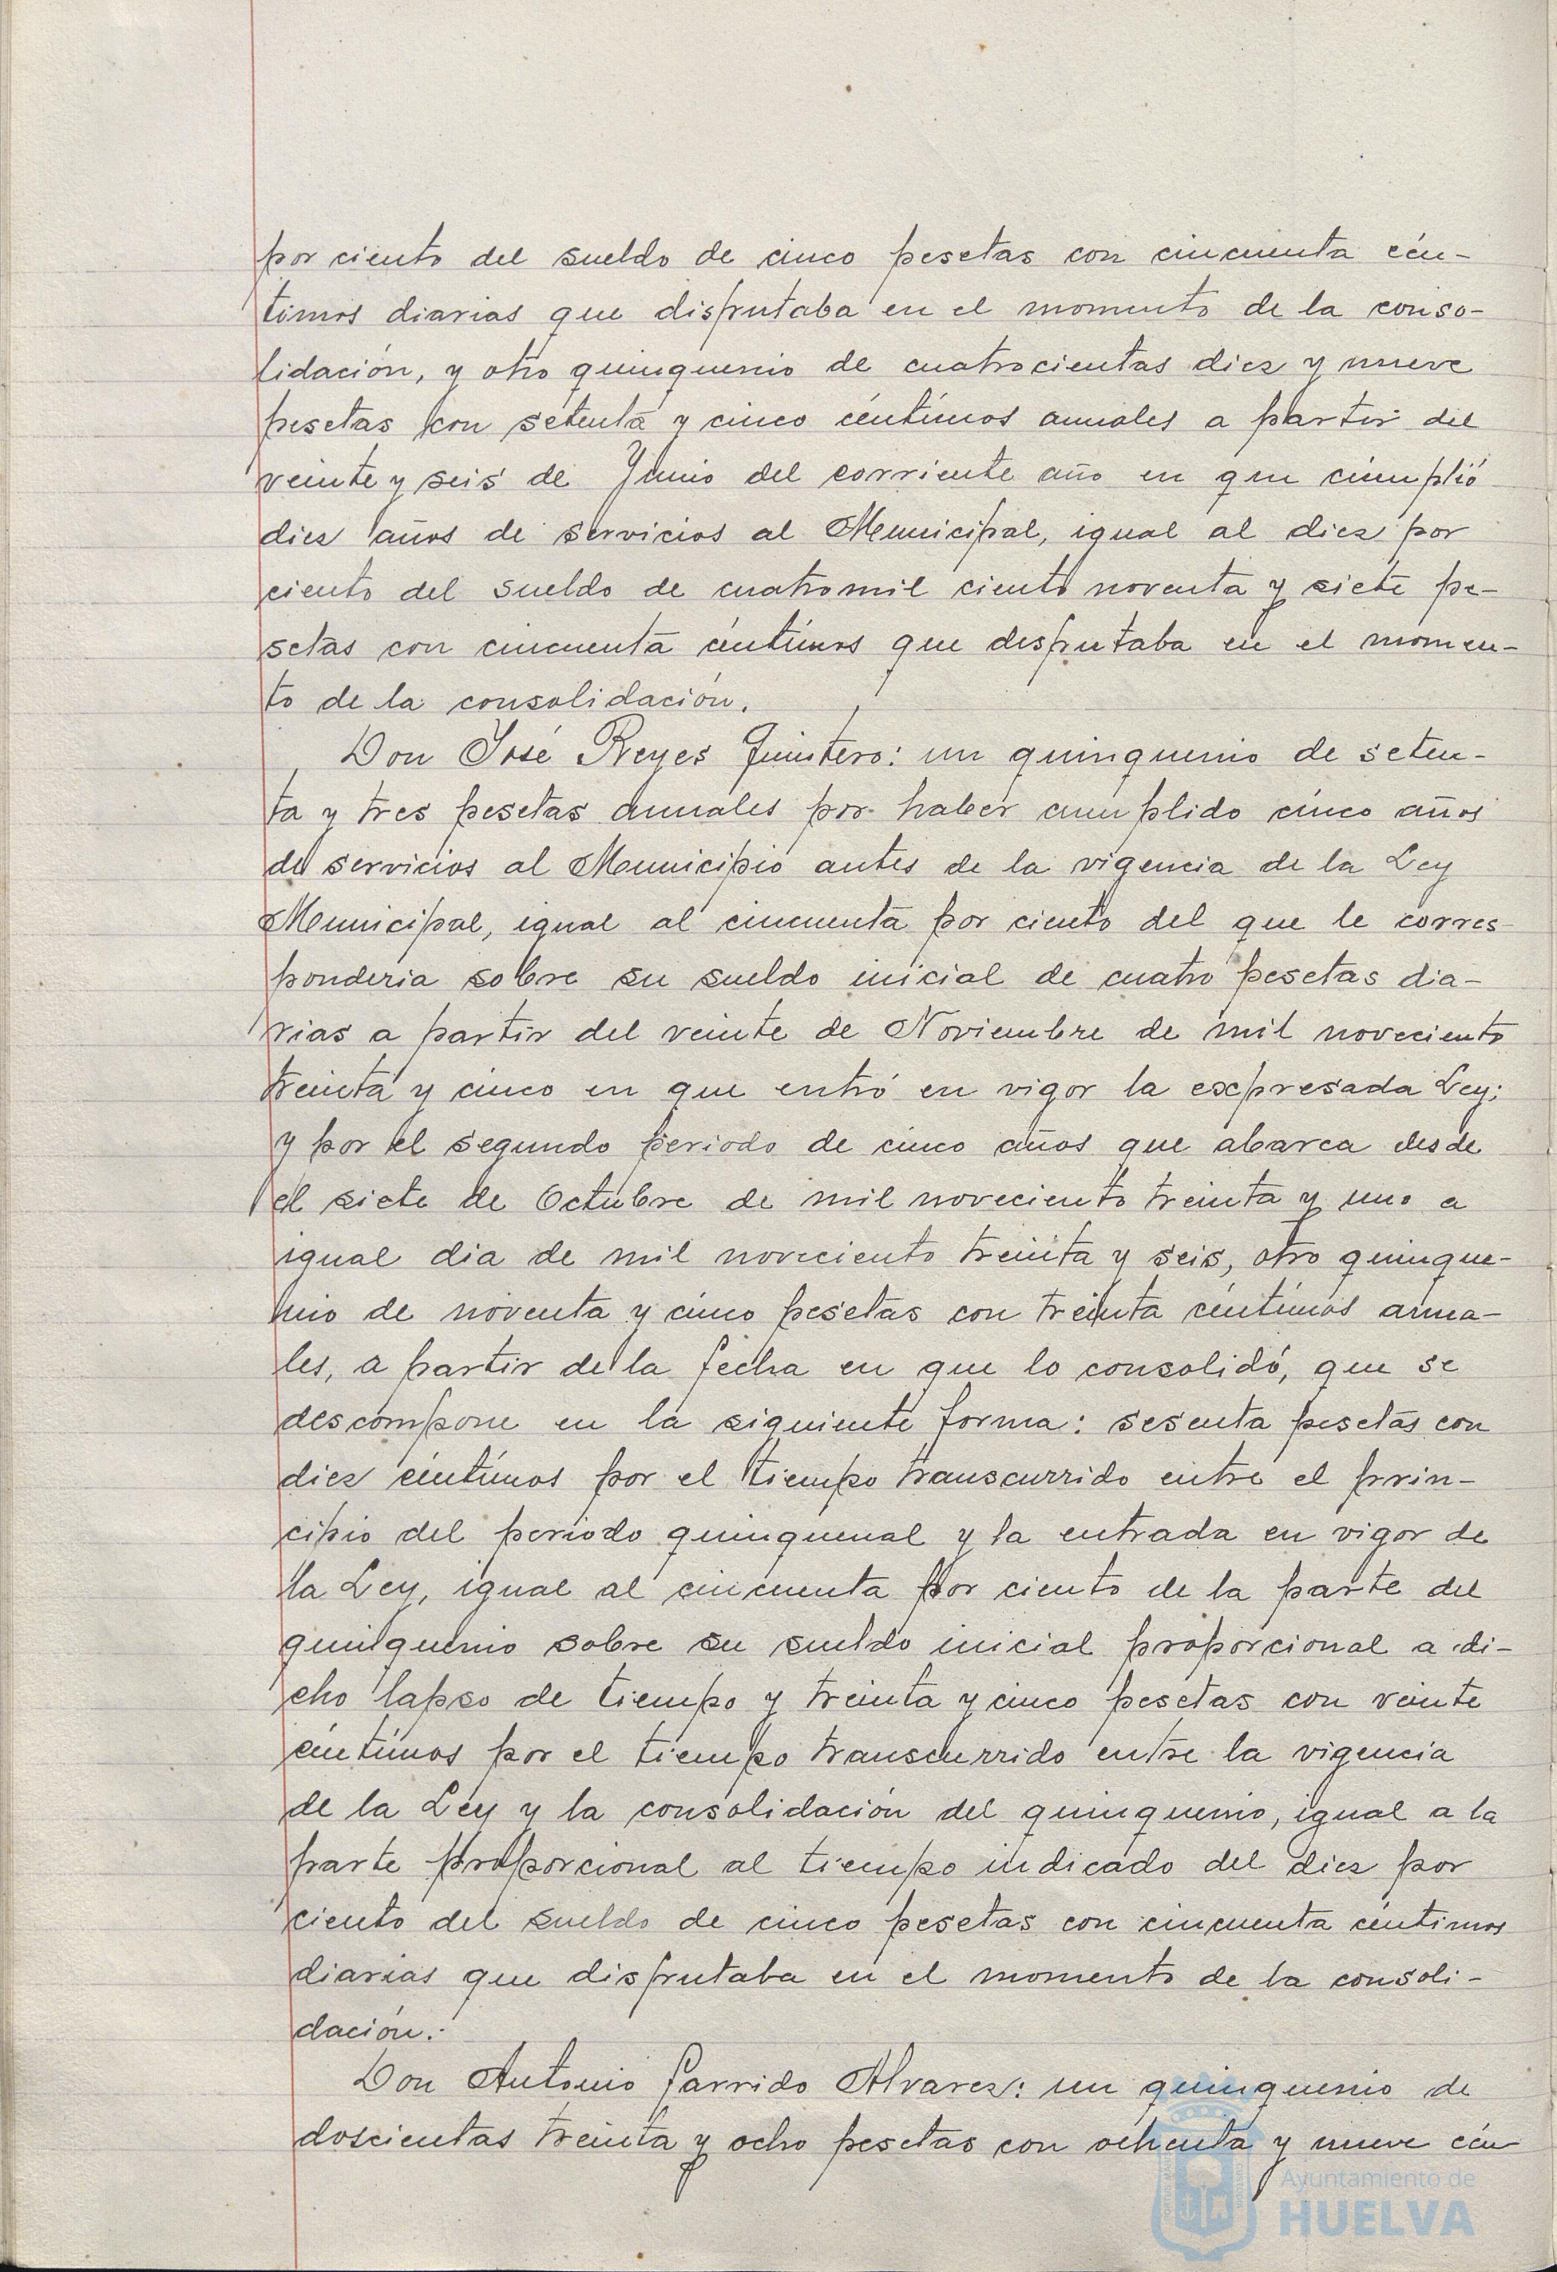 por ciento del sueldo de cinco pesetas con cincuenta cén-
timos diarias que disfrutaba en el momento de la conso-
lidación, y otro quinquenio de cuatrocientas diez y nueve
pesetas con setenta y cinco céntimos anuales a partir del
veinte y seis de Junio del corriente año en que cumplió
diez años de servicios al Municipal, igual al diez por
ciento del sueldo de cuatromil ciento noventa y siete pe-
setas con cincuenta céntimos que disfrutaba en el momen-
to de la consolidación.
Don José Reyes Quintero: un quinquenio de seten-
ta y tres pesetas anuales por haber cumplido cinco años
de servicios al Municipio antes de la vigencia de la Ley
Municipal, igual al cincuenta por ciento del que le corres-
ponderia sobre su sueldo inicial de cuatro pesetas dia-
rias a partir del veinte de Noviembre de mil noveciento
treinta y cinco en que entró en vigor la expresada Ley;
y por el segundo periodo de cinco años que abarca desde
el siete de Octubre de mil noveciento treinta y uno a
igual dia de mil noveciento treinta y seis, otro quinque-
nio de noventa y cinco pesetas con treinta céntimos anua-
les, a partir de la fecha en que lo consolidó, que se
descompone en la siguiente forma: sesenta pesetas con
diez céntimos por el tiempo transcurrido entre el prin-
cipio del periodo quinquenal y la entrada en vigor de
la Ley, igual al cincuenta por ciento de la parte del
quinquenio sobre su sueldo inicial proporcional a di-
cho lapso de tiempo y treinta y cinco pesetas con veinte
céntimos por el tiempo transcurrido entre la vigencia
de la Ley y la consolidación del quinquenio, igual a la
parte proporcional al tiempo indicado del diez por
ciento del sueldo de cinco pesetas con cincuenta céntimos
diarias que disfrutaba en el momento de la consoli-
dación.
Don Antonio Garrido Alvarez: un quinquenio de
doscientas treinta y ocho pesetas con ochenta y nueve cén
Ayuntamiento de
HUELVA